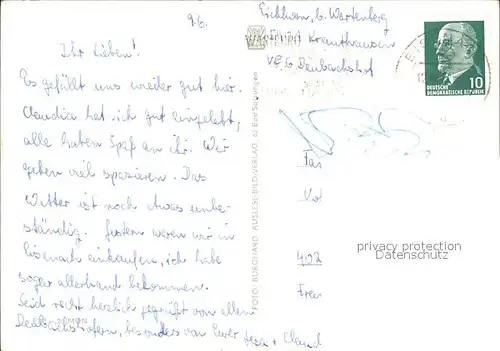 9.6.
Ihr Lieben!
Es gefällt uns wieder gut hier.
Claudia hat sich gut eingelebt,
alle haben Spaß an ihr. Wir
gehen viel spazieren. Das
Wetter ist noch etwas unbe-
ständig. Gestern waren wir in
Eisenach einkaufen, ich habe
sogar allerhand bekommen.
Seid recht herzlich gegrüßt von allen
besonders von Eurer
+ Claud
FOTO: BURGHARD AUSLESE-BILD-VERLAG
Eichhorn, b. Wartenberg
Krauthausen
VEG Deubachshof
10
DEUTSCHE
DEMOKRATISCHE REPUBLIK
Fam
Vol
402
Frei
privacy protection
Datenschutz